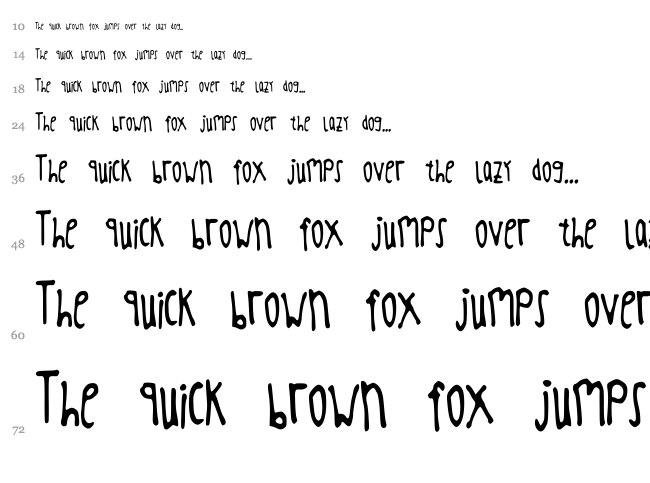 10 The quick brown fox jumps over the lazy dog...
14 The quick brown fox jumps over the lazy dog...
18 The quick brown fox jumps over the lazy dog...
24 The quick brown fox jumps over the lazy dog...
36 The quick brown fox jumps over the lazy dog...
48 The quick brown fox jumps over the la
60 The quick brown fox jumps over
72 The quick brown fox jumps